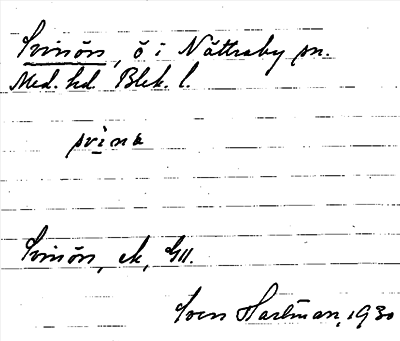 Svinön, ö i Nättraby sn.
Med. hd. Blek. l.
svina
Svinön, ek, G11.
Sven Hartman, 1930